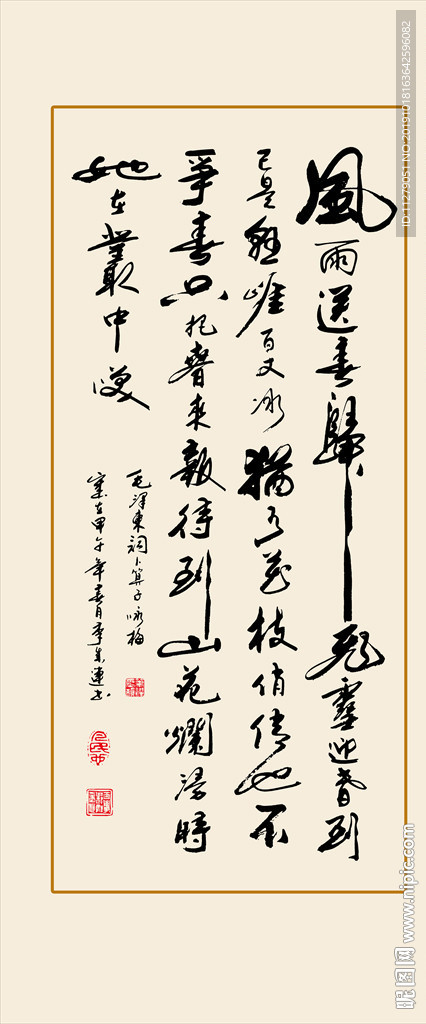 風雨送春歸飛雪迎春到
已是懸崖百丈冰猶有花枝俏俏也不
爭春只把春來報待到山花爛漫時
她在叢中笑
毛澤東詞卜算子咏梅
歲在甲午年春月李
昵图网 www.nipic.com